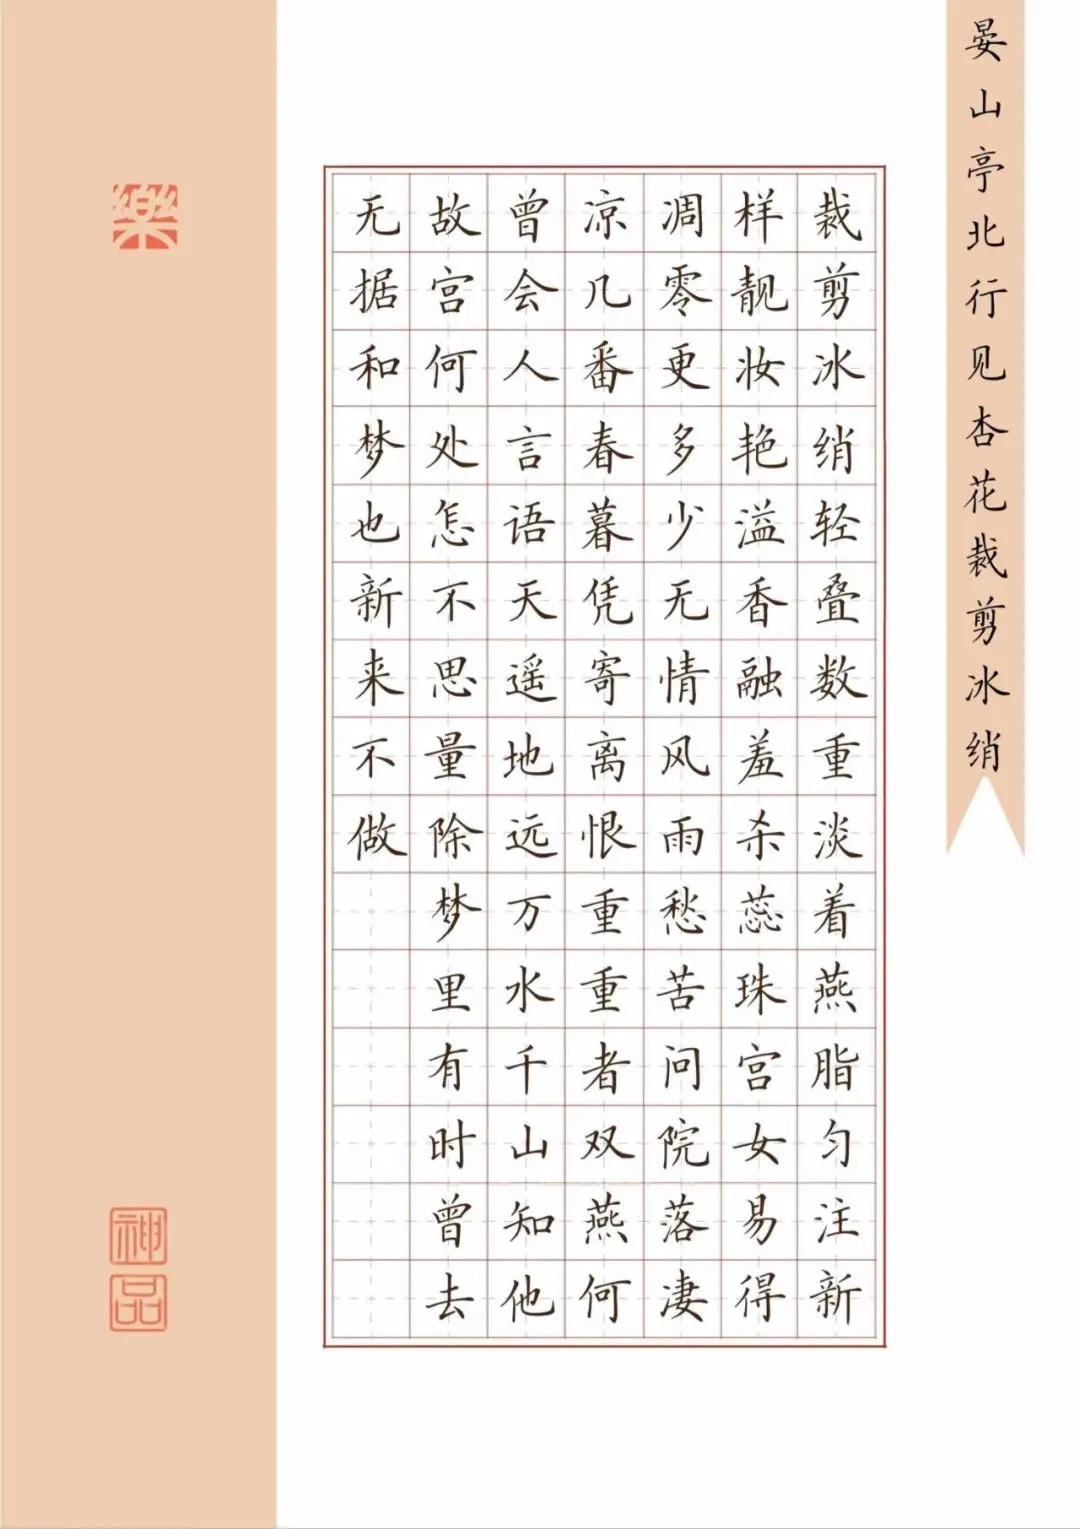 晏山亭北行见杏花裁剪冰绡
裁剪冰绡轻叠数重淡着燕脂匀注新
样靓妆艳溢香融羞杀蕊珠宫女易得
凋零更多少无情风雨愁苦问院落凄
凉几番春暮凭寄离恨重重者双燕何
曾会人言语天遥地远万水千山知他
故宫何处怎不思量除梦里有时曾去
无据和梦也新来不做
樂
神品